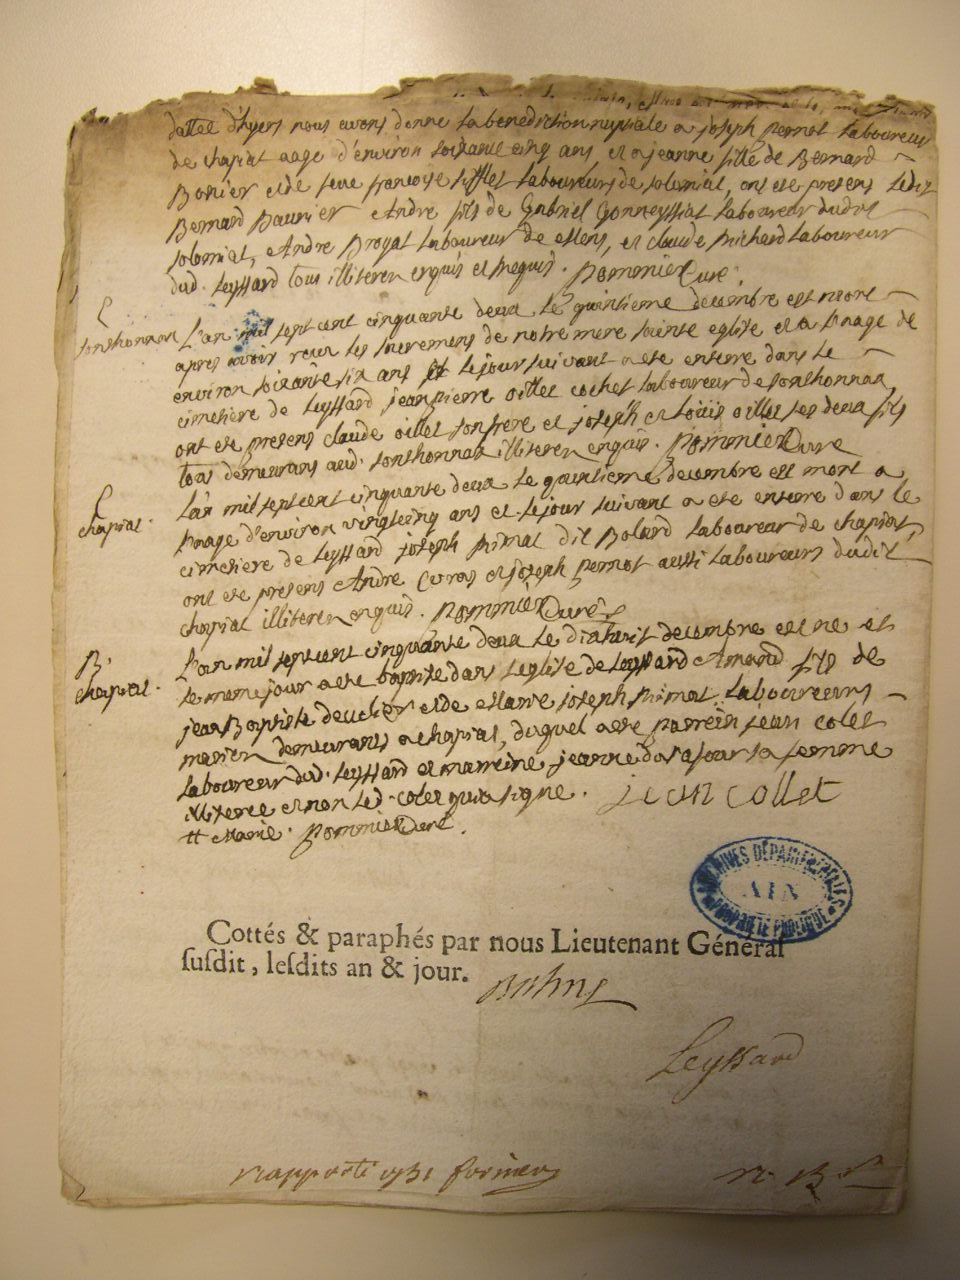 dattee d'hyers nous avons donne la benediction nuptiale a joseph pernot laboureur
de chapiat aage d'environ soixante cinq ans, et a jeanne fille de Bernard
Bonier et de feue francoise sifflet laboureurs de solomiat, ont ete presens ledit
Bernard Baunier Andre fils de Gabriel Gonneyssiat laboureur dudit
solomiat, Andre Broyat laboureur de et claude michard laboureur
dud. Leyssard tous illiteres enquis et requis. Pommier Curé.
S
sonthonnax L'an mil sept cent cinquante deux le quintieme decembre est mort
apres avoir recu les sacremens de notre mere sainte eglise et a l'aage de
environ soixante six ans et le jour suivant a ete enterre dans le
cimetiere de Leyssard jean pierre oillet cochet laboureur de sonthonnax
ont ete presens claude oillet son frere et joseph et Loüis oillet ses deux fils
tous demeurans aud. sonthonnax illiteres enquis. Pommier Cure
S
chapiat. L'an mil sept cent cinquante deux le quintieme decembre est mort a
l'aage d'environ vingt cinq ans et le jour suivant a ete enterre dans le
cimetiere de Leyssard joseph primat dit Bolard laboureur de chapiat,
ont ete presens Andre et joseph pernot aussi laboureurs dudit
chapiat illiteres enquis. Pommier Curé
B.
chapiat. L'an mil sept cent cinquante deux le dixhuit decembre est ne et
le meme jour a ete baptise dans l'eglise de Leyssard Amand fils de
jean Baptiste et de Marie joseph primat laboureurs
demeurants a chapiat, duquel a ete parrein jean colet
laboureur dud. Leyssard et marreine jeanne sa femme
illiteree et non led. colet qui a signe. jean collet
tt Marie. Pommier Curé.
ARCHIVES DÉPARTEMENTALES
AIN
PROPRIÉTÉ PUBLIQUE
Cottés & paraphés par nous Lieutenant Général
susdit, lesdits an & jour.
Leyssard
rapporté